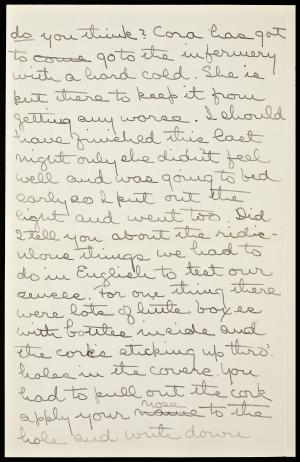 do you think? Cora has got
to come go to the infermery
with a hard cold. She is
put there to keep it from
getting any worse. I should
have finished this last
night only she didn't feel
well and was going to bed
early so I put out the
light and went too. Did
I tell you about the ridic-
ulous things we had to
do in English to test our
senses. For one thing there
were lots of little boxes
with bottles inside and
the corks sticking up thro'
holes in the covers. You
had to pull out the cork
nose
apply your name to the
hole and write down